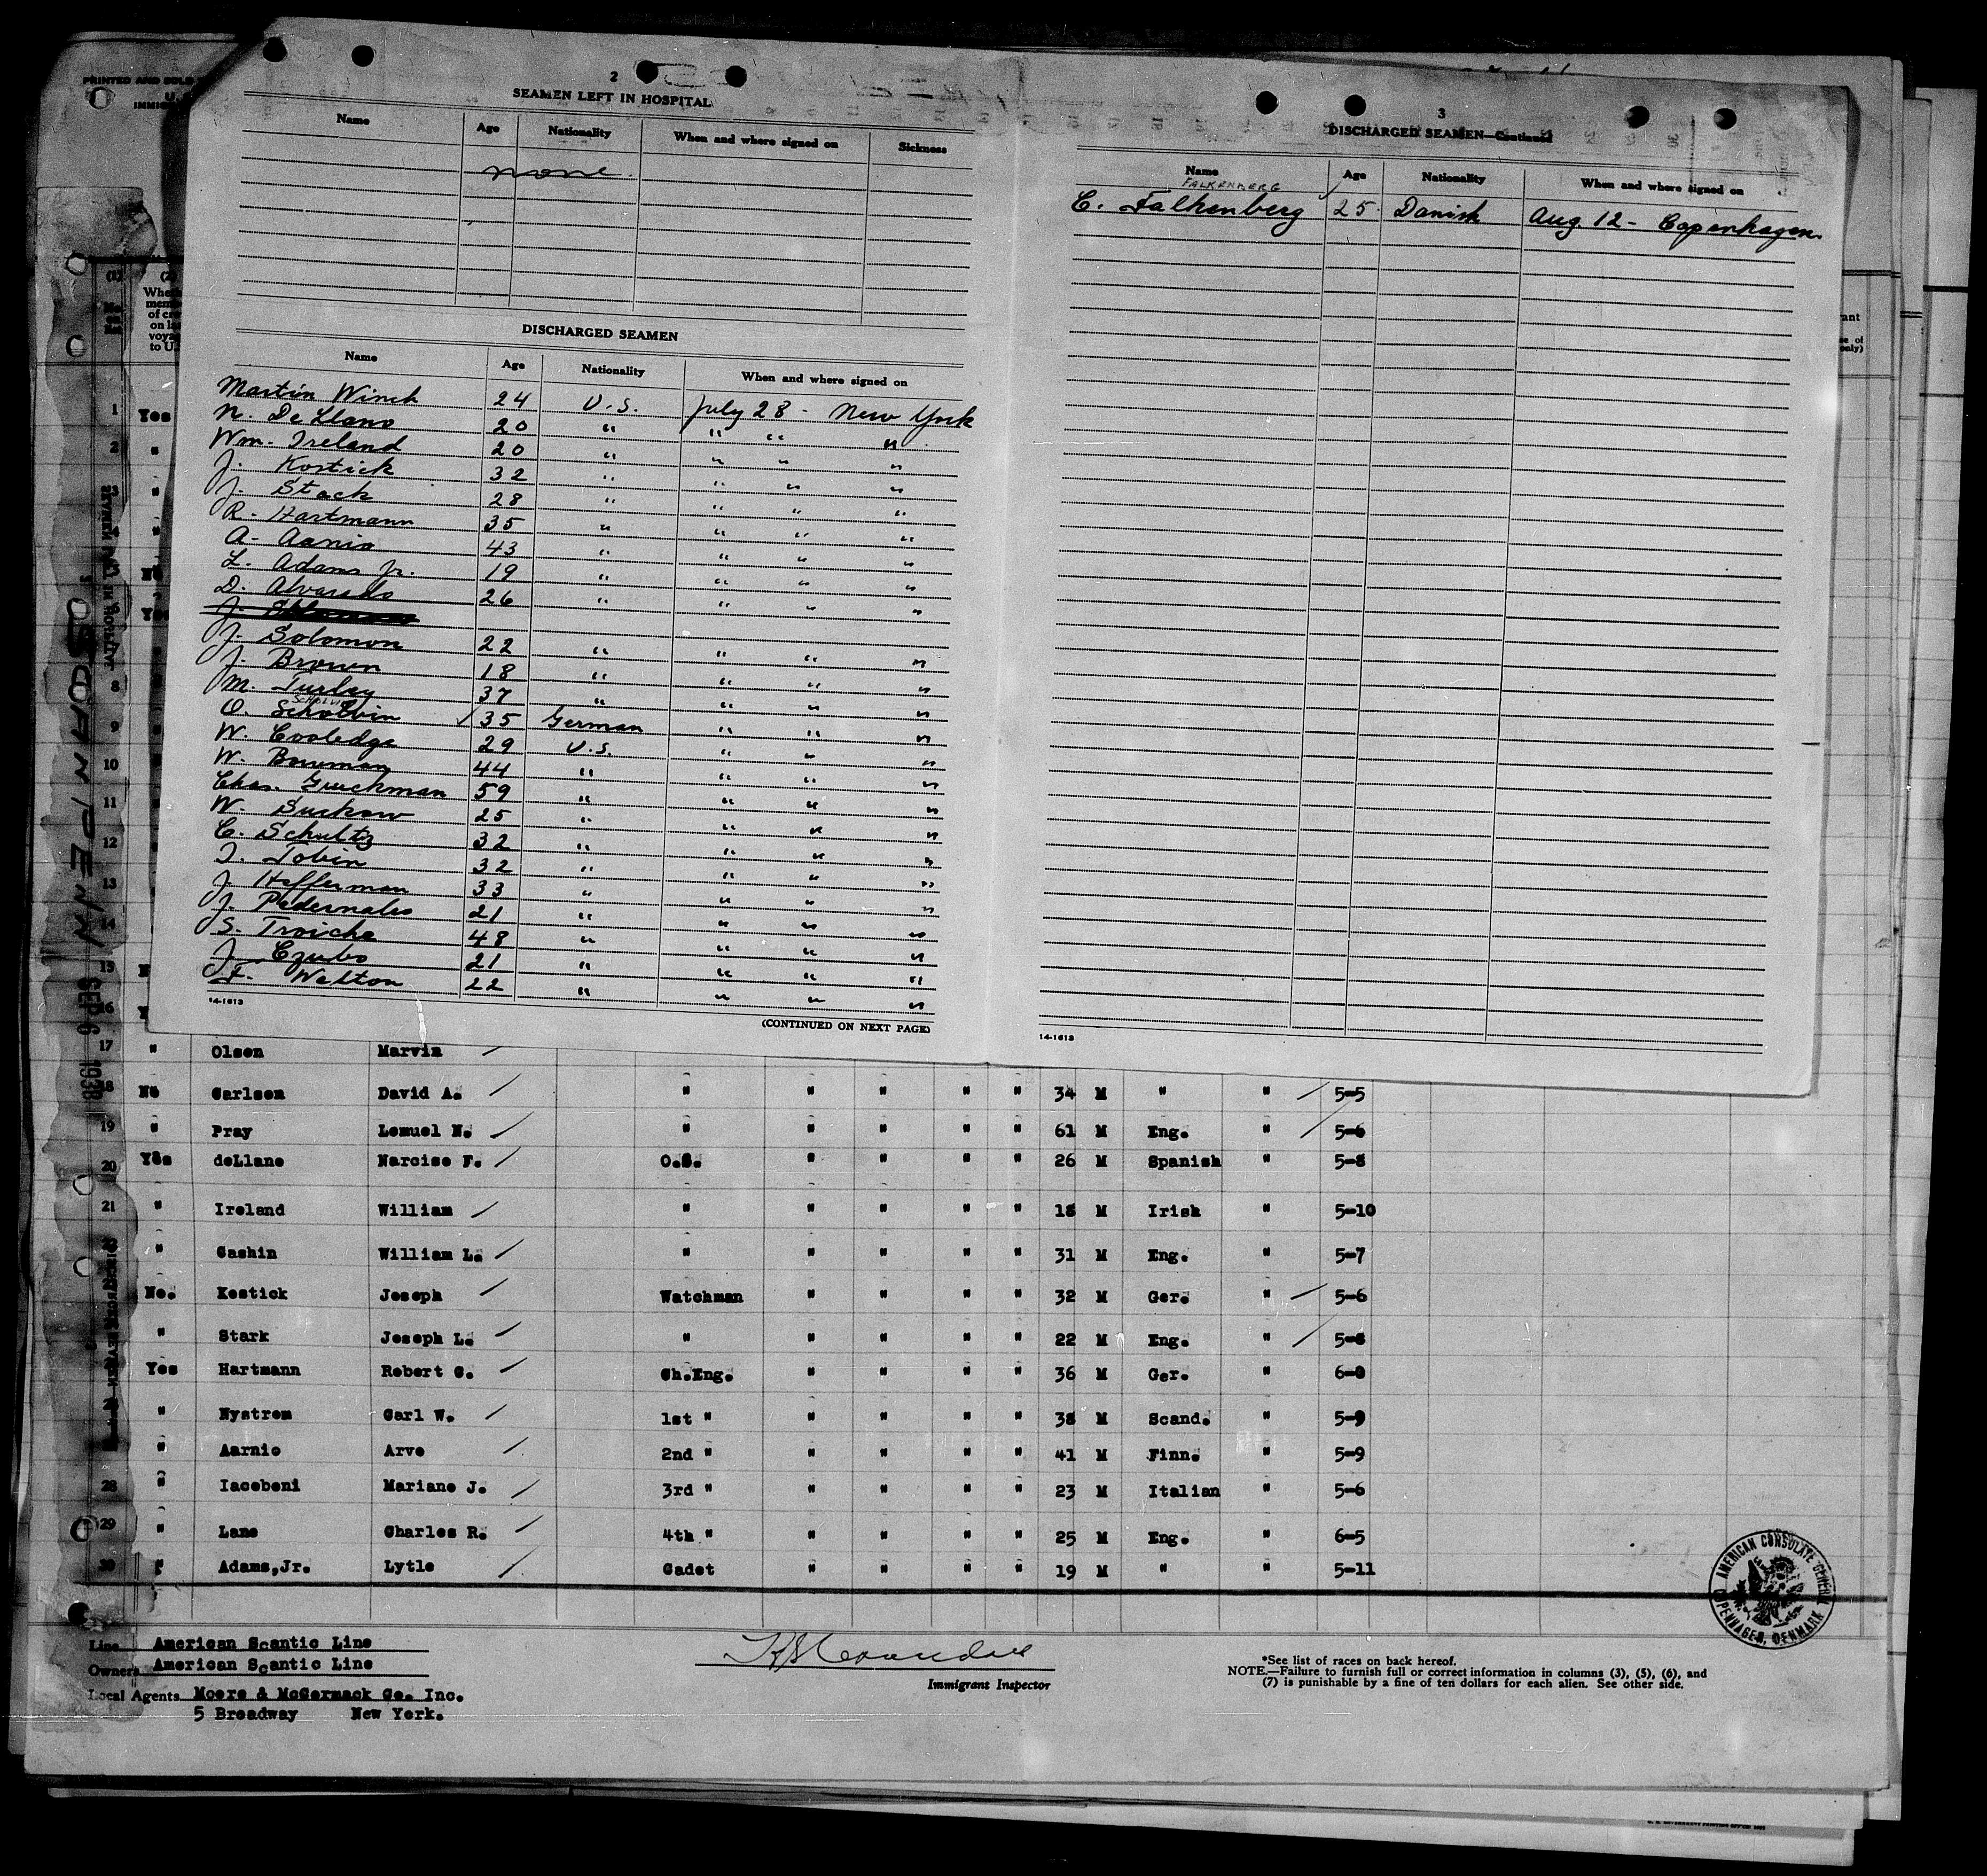 PRINTED AND SOLD
2
SEAMEN LEFT IN HOSPITAL
Name Age Nationality When and where signed on Sickness
none.
DISCHARGED SEAMEN
Name Age Nationality When and where signed on
Martin Winch 24 U.S. July 28 - New York
N. De Llano 20 " " " "
Wm. Ireland 20 " " " "
J. Kostick 32 " " " "
J. Stack 28 " " " "
R. Hartmann 35 " " " "
A. Aanio 43 " " " "
L. Adams Jr. 19 " " " "
D. Alvarado 26 " " " "
J.
J. Solomon 22 " " " "
J. Brown 18 " " " "
M. Turley 37 " " " "
O. Scholvin 35 German " " "
W. Cooledge 29 U.S. " " "
W. Bowman 44 " " " "
Chas. 59 " " " "
W. Suckow 25 " " " "
C. Schultz 32 " " " "
T. Tobin 32 " " " "
J. Hefferman 33 " " " "
J. Pedernales 21 " " " "
S. Troiche 48 " " " "
J. Czubo 21 " " " "
F. Welton 22 " " " "
14-1613
(CONTINUED ON NEXT PAGE)
3
DISCHARGED SEAMEN—Continued
Name Age Nationality When and where signed on
FALKENBERG
C. Falkenberg 25 Danish Aug. 12 - Copenhagen.
14-1613
SCANPENN SEP 6 1938
17 " Olsen Marvin
18 No Carlson David A. " " " " " 34 M " " 5-5
19 " Pray Lemuel N. " " " " " 61 M Eng. " 5-6
20 Yes deLlane Narcise F. O.S. " " " " 26 M Spanish " 5-8
21 " Ireland William " " " " " 18 M Irish " 5-10
" Cashin William L. " " " " " 31 M Eng. " 5-7
No. Kostick Joseph Watchman " " " " 32 M Ger. " 5-6
" Stark Joseph L. " " " " " 22 M Eng. " 5-8
Yes Hartmann Robert C. Ch.Eng. " " " " 36 M Ger. " 6-0
" Nystrom Carl W. 1st " " " " " 38 M Scand. " 5-9
" Aarnio Arvo 2nd " " " " " 41 M Finn. " 5-9
28 " Iacoboni Mariano J. 3rd " " " " " 23 M Italian " 5-6
29 " Lane Charles R. 4th " " " " " 25 M Eng. " 6-5
30 " Adams,Jr. Lytle Cadet " " " " 19 M " " 5-11
Line American Scantic Line
Owners American Scantic Line
Local Agents Moore & McCormack Co. Inc.
5 Broadway New York.
Immigrant Inspector
*See list of races on back hereof.
NOTE.—Failure to furnish full or correct information in columns (3), (5), (6), and
(7) is punishable by a fine of ten dollars for each alien. See other side.
AMERICAN CONSULATE GENERAL
COPENHAGEN, DENMARK